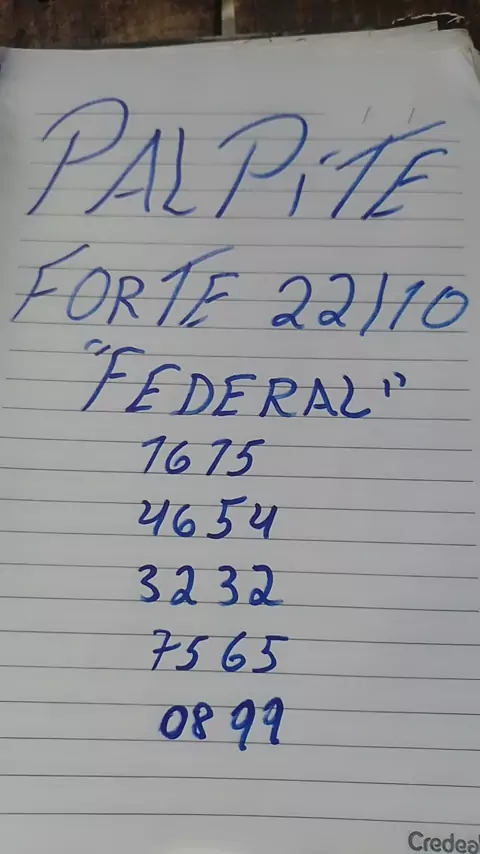 PALPiTE
FORTE 22/10
"FEDERAL"
1675
4654
3232
7565
0899
Credea